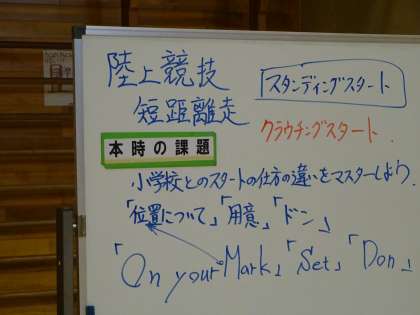 陸上競技
スタンディングスタート
短距離走
クラウチングスタート.
本時の課題
小学校とのスタートの仕方の違いをマスターしよう.
「位置について」「用意」「ドン」
「On your Mark」「Set」「Don」